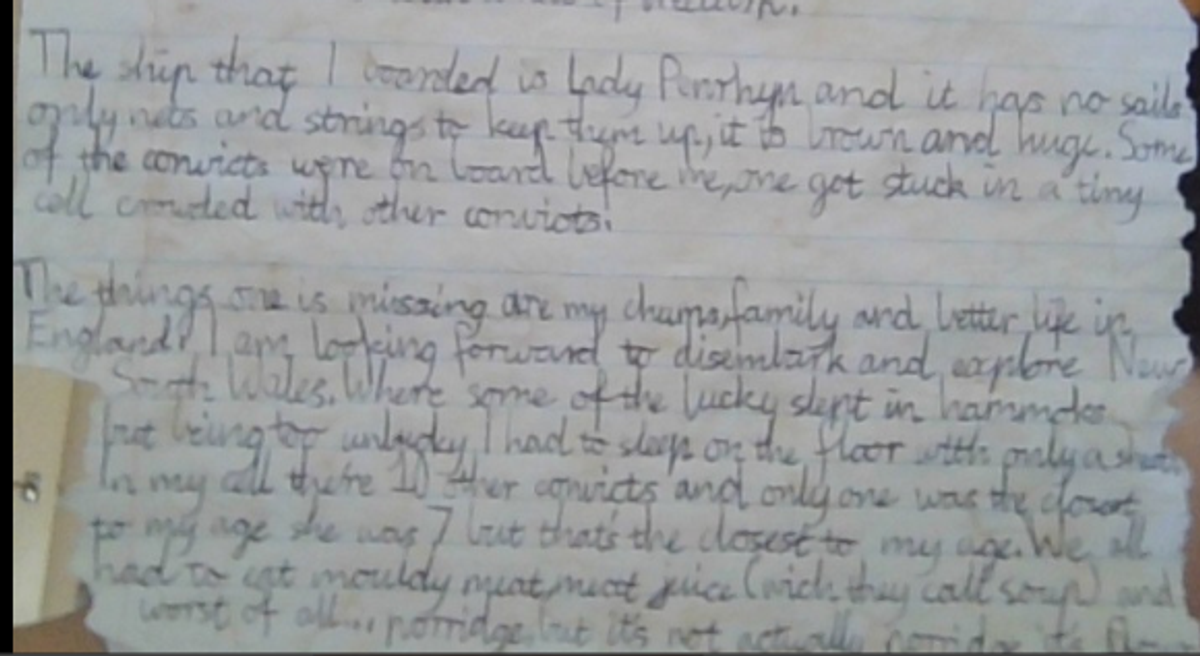 The ship that I boarded is Lady Penrhyn and it has no sails
only nets and strings to keep them up, it is brown and huge. Some
of the convicts were on board before me, me got stuck in a tiny
cell crowded with other convicts.
The things one is missing are my chums, family and better life in
England. I am looking forward to disembark and explore New
South Wales. Where some of the lucky slept in hammocks
but being too unlucky I had to sleep on the floor with only a sheet
In my cell there 10 other convicts and only one was the closest
to my age she was 7 but that's the closest to my age. We all
had to eat mouldy meat, meat juice (wich they call soup) and
worst of all... porridge, but it's not actually porridge it's